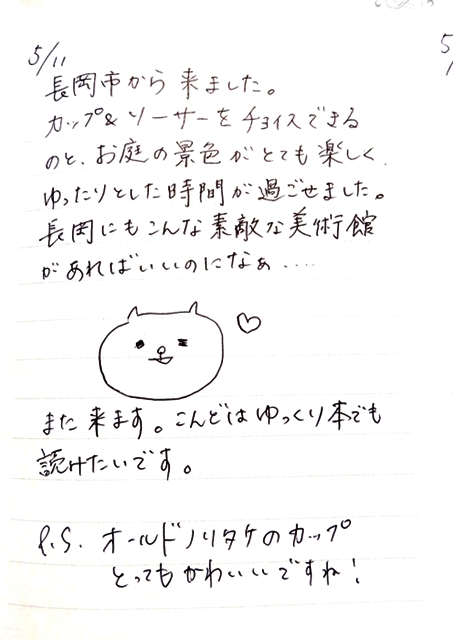 5/11
長岡市から来ました。
カップ&ソーサーをチョイスできる
のと、お庭の景色がとても楽しく
ゆったりとした時間が過ごせました。
長岡にもこんな素敵な美術館
があればいいのになぁ....
また来ます。こんどはゆっくり本でも
読けたいです。
P.S. オールドノリタケのカップ
とってもかわいいですね!